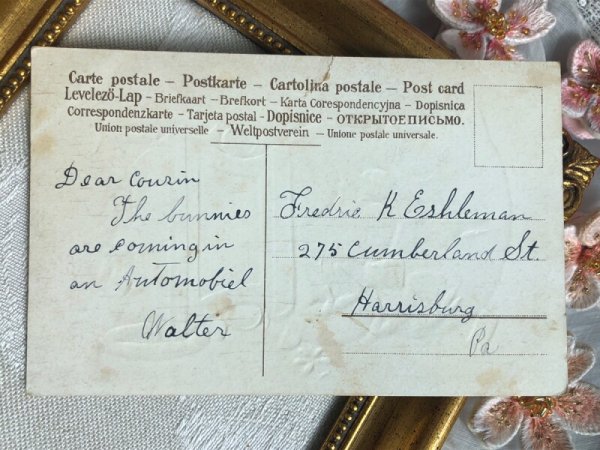 Carte postale – Postkarte – Cartolina postale – Post card
Levelező-Lap - Briefkaart - Brefkort - Karta Corespondencyjna - Dopisnica
Correspondenzkarte - Tarjeta postal - Dopisnice - ОТКРЫТОЕПИСЬМО.
Union postale universelle - Weltpostverein - Unione postale universale.
Dear Cousin
The bunnies
are coming in
an Automobiel
Walter
Fredric K Eshleman
275 Cumberland St.
Harrisburg
Pa